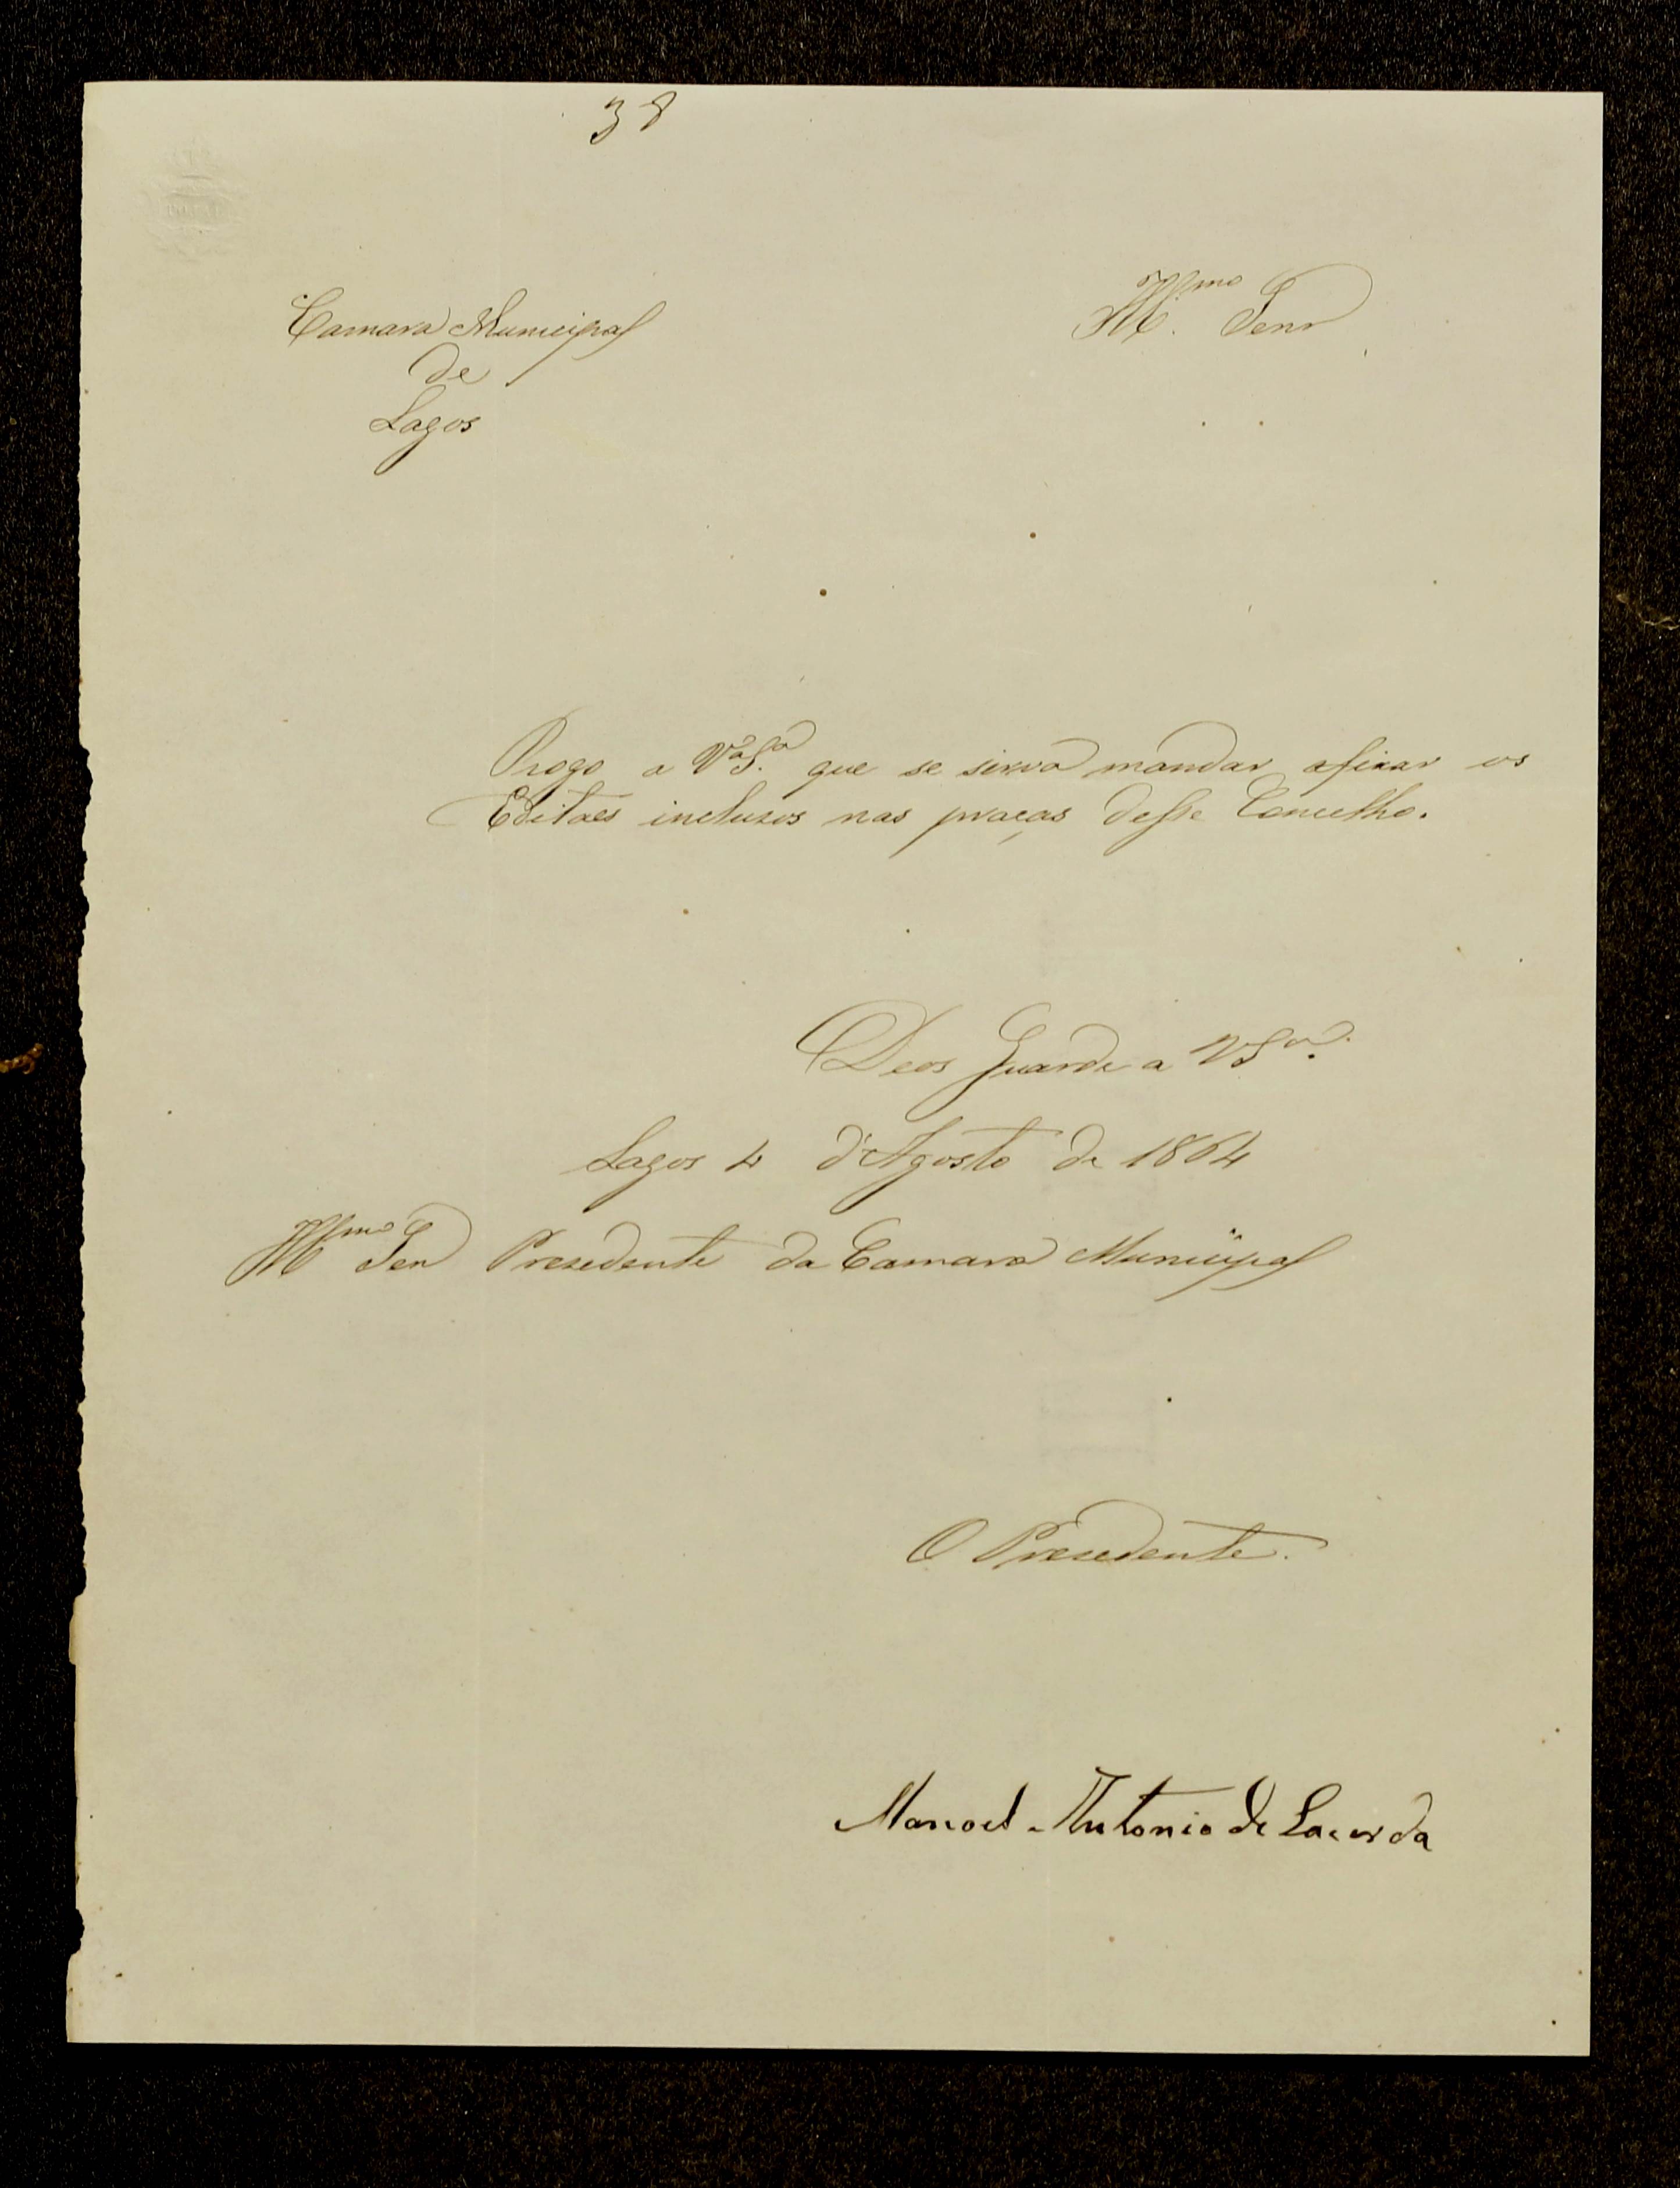 38
Camara Municipal
de
Lagos
Illmo Senr
Rogo a Va Sa. que se sirva mandar afixar os
Editaes incluzos nas praças desse Concelho.
Deos Guarde a VSa.
Lagos 4 d'Agosto de 1864
Illmo Sen Presedente da Camara Municipal
O Presedente.
Manoel Antonio de Lacerda